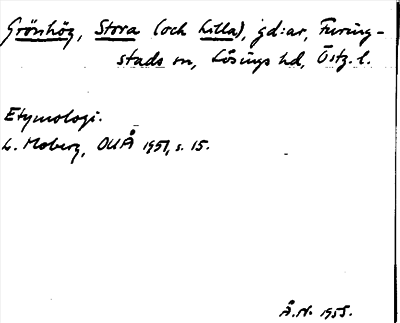 Grönhög, Stora (och Lilla), gd:ar, Furing-
stads sn, Lösings hd, Östg. l.
Etymologi.
L. Moberg, OUÅ 1951, s. 15.
Å.N. 1955.